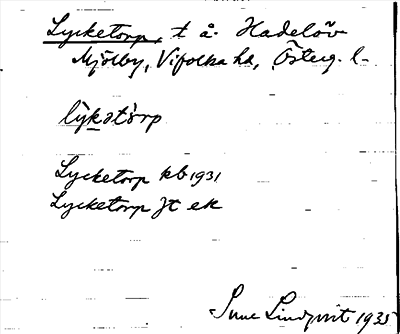 Lycketorp, t å. Hadelöv
Mjölby, Vifolka hd, Österg. l.
lỳkatòrp
Lycketorp kb 1931
Lycketorp Jt ek
Sune Lindqvist 1935